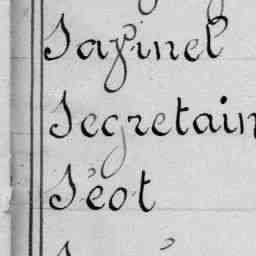 Sapinel
Segretain
Séot